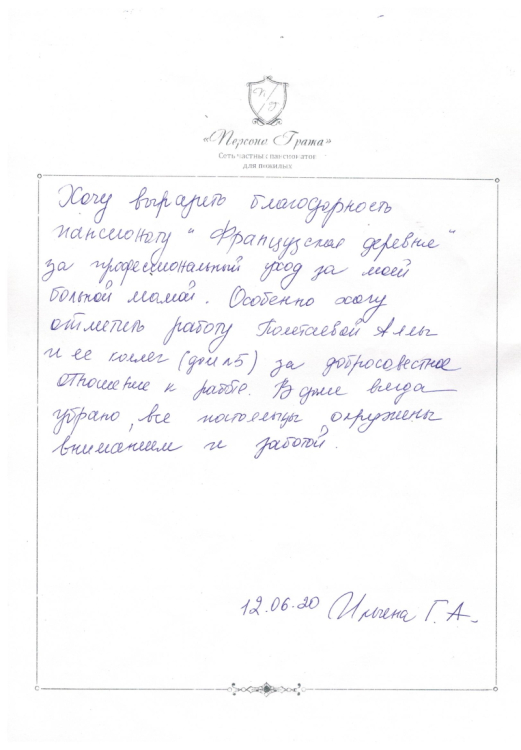 «Персона Гратa»
Сеть частных пансионатов
для пожилых
Хочу выразить благодарность
пансионату "Французская деревня"
за профессиональный уход за моей
больной мамой. Особенно хочу
отметить работу Полетаевой Аллы
и ее коллег (дом 5) за добросовестное
отношение к работе. В доме всегда
убрано, все постояльцы окружены
вниманием и заботой.
12.06.20 Ильина Г. А.